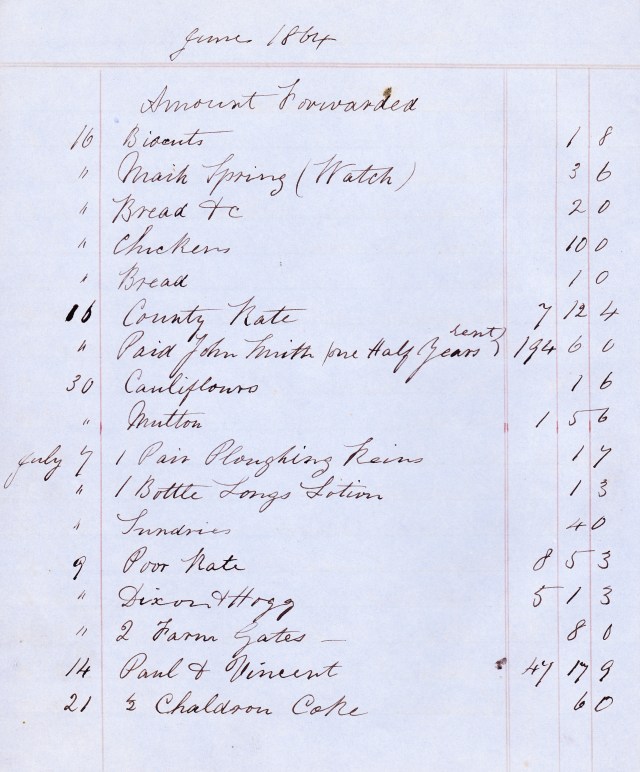 June 1864
Amount Forwarded
16 Biscuits 1 8
" Main Spring (Watch) 3 6
" Bread &c 2 0
" Chickens 10 0
" Bread 1 0
16 County Rate 7 12 4
" Paid John Smith (one Half Years rent) 194 6 0
30 Cauliflours 1 6
" Mutton 1 5 6
July 7 1 Pair Ploughing Reins 1 7
" 1 Bottle Longs Lotion 1 3
" Sundries 4 0
9 Poor Rate 8 5 3
" Dixon & Hogg 5 1 3
" 2 Farm Gates — 8 0
14 Paul & Vincent 47 17 9
21 ½ Chaldron Coke 6 0